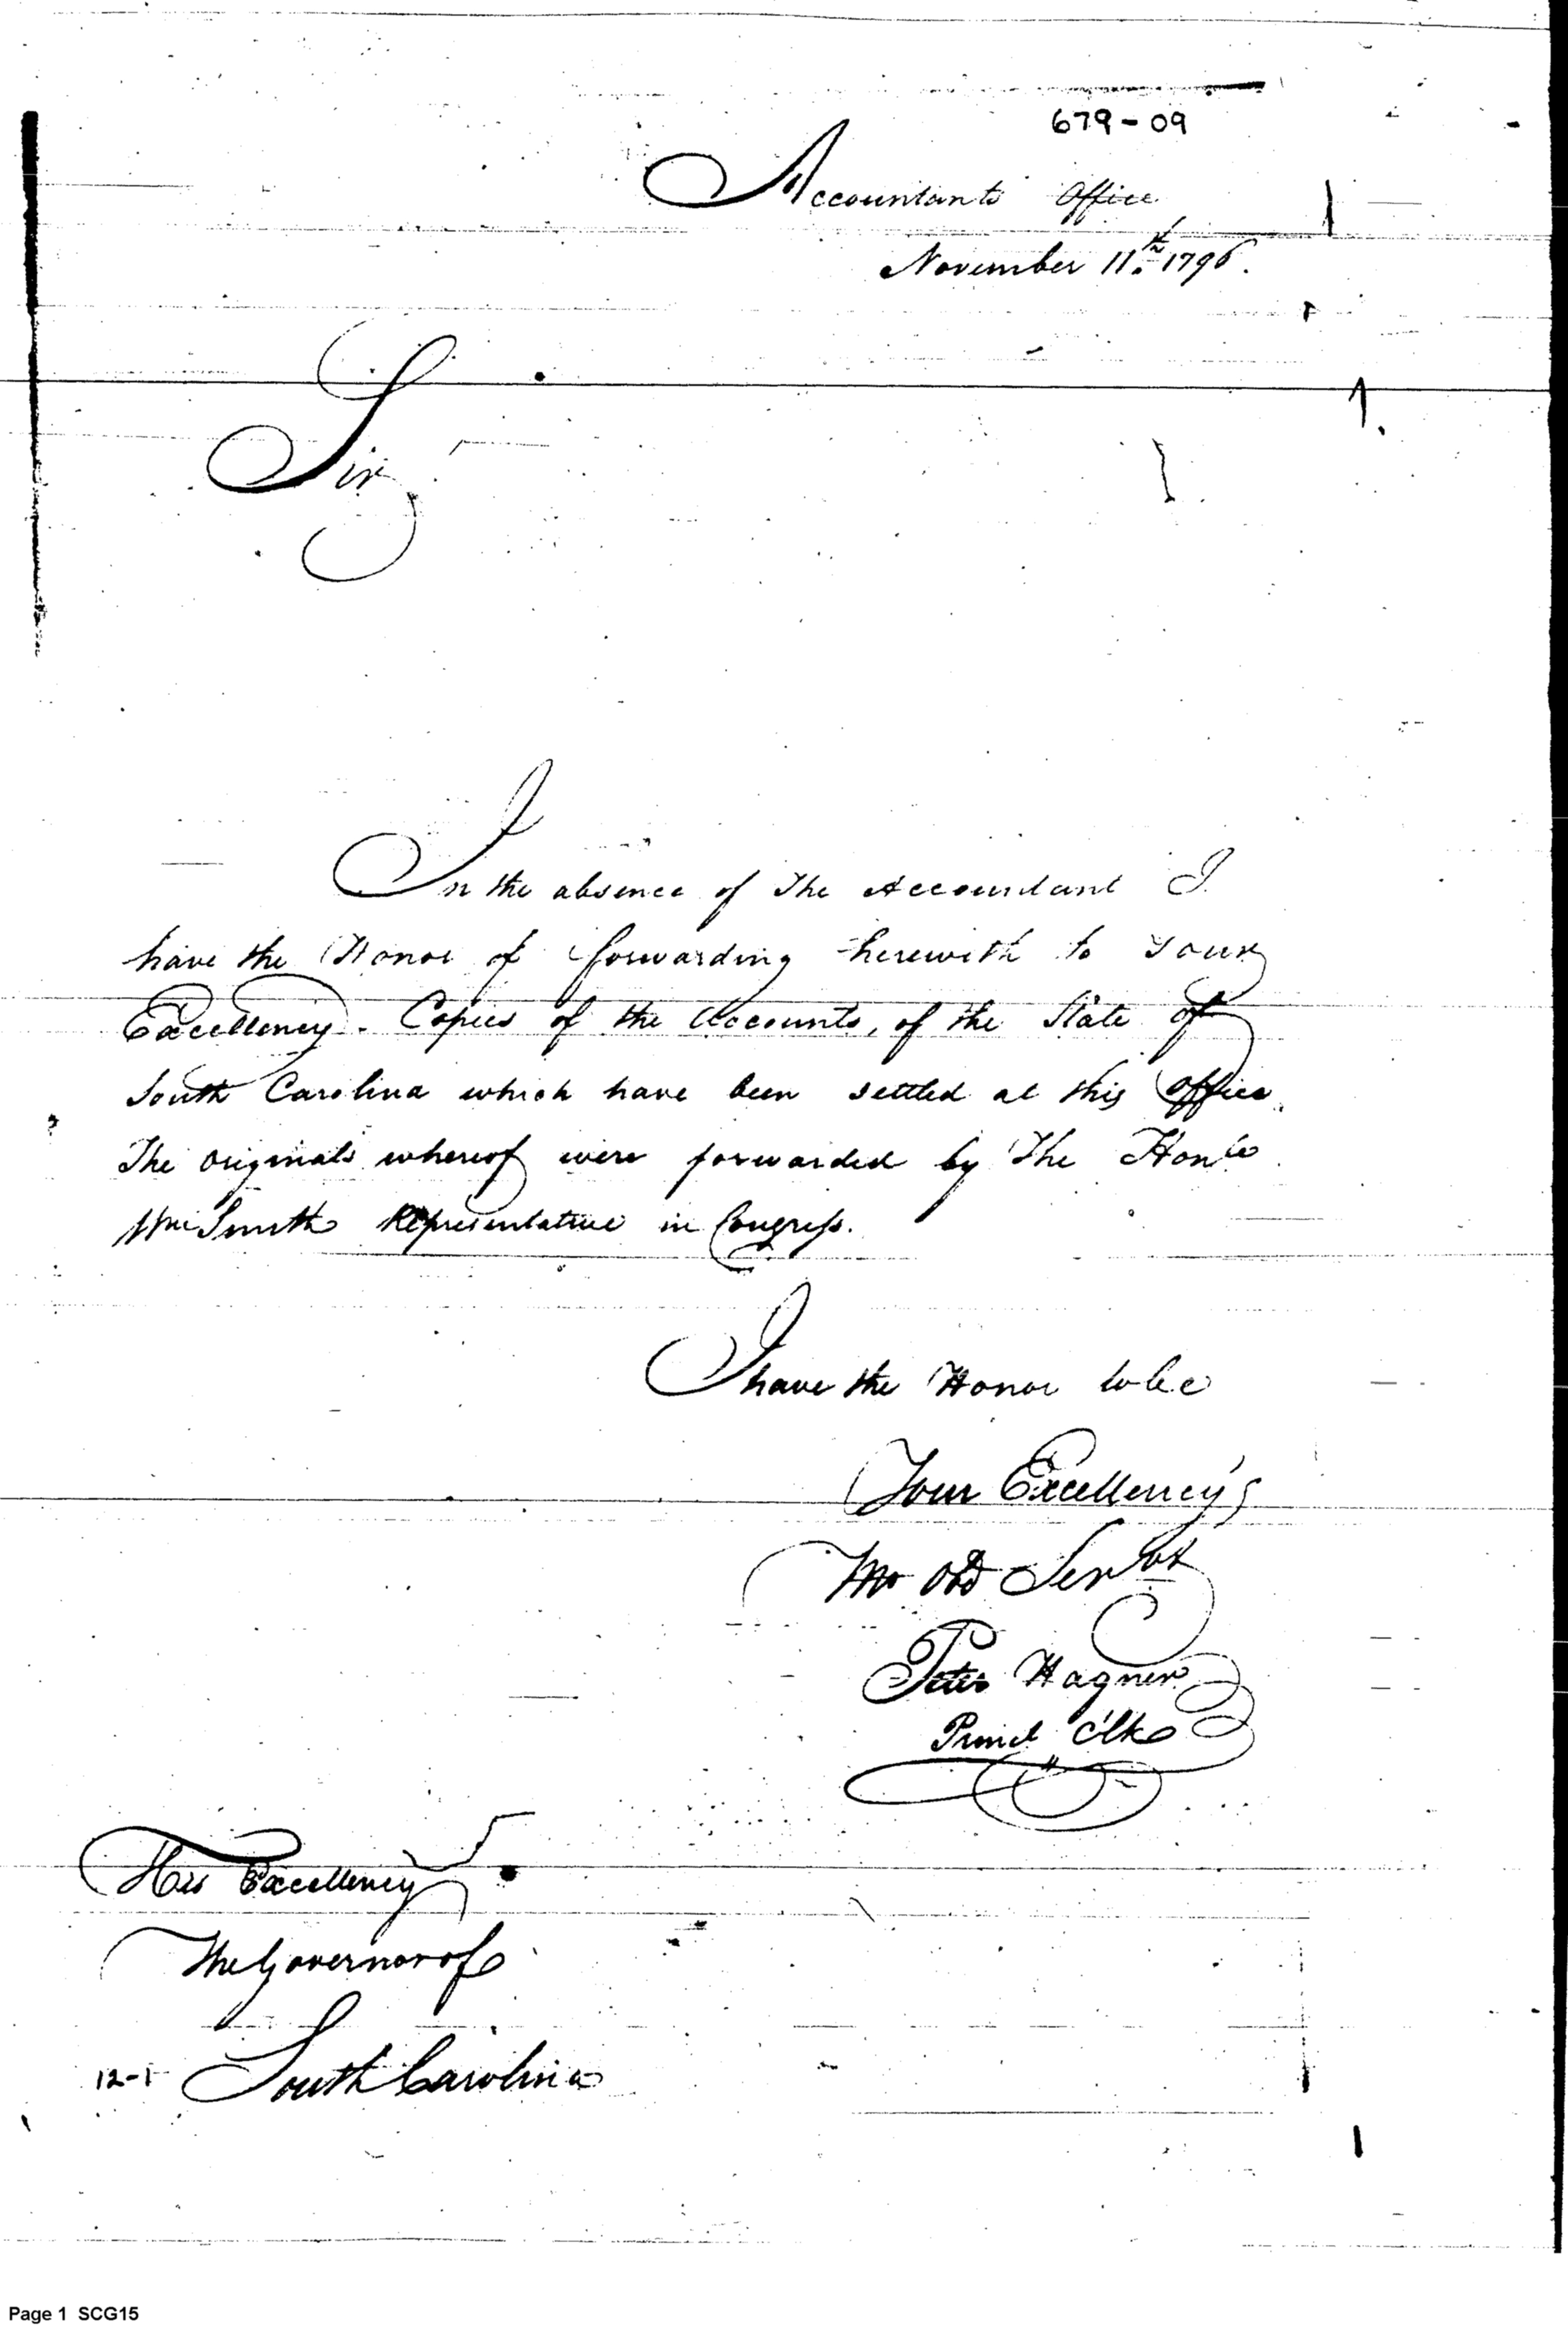 679-09
Accountants Office
November 11th 1796.
Sir,
In the absence of The Accountant I
have the Honor of forwarding herewith to Your
Excellency. Copies of the Accounts, of the State of
South Carolina which have been settled at this Office.
The originals whereof were forwarded by The Honle
Wm Smith Representative in Congress.
I have the Honor to be
Your Excellency's
Mo Obd Servt
Peter Hagner
Princl Clk
His Excellency
The Governor of
12-1 South Carolina
Page 1 SCG15